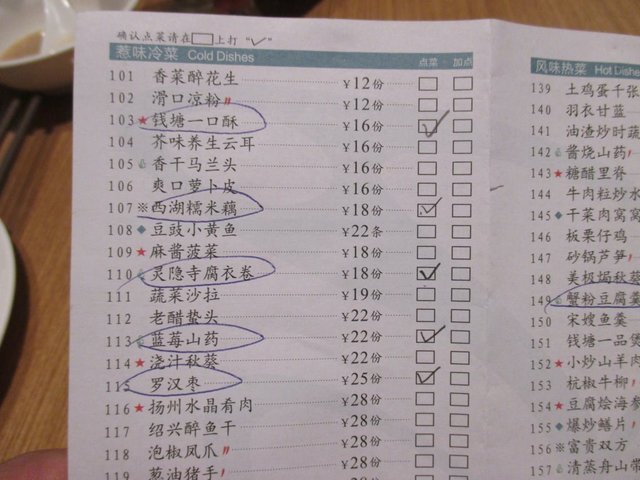 确认点菜请在□上打 "✓"
惹味冷菜 Cold Dishes 点菜 加点
101 香菜醉花生 ¥12份
102 滑口凉粉 ¥12份
103 ★钱塘一口酥 ¥16份
104 芥味养生云耳 ¥16份
105 香干马兰头 ¥16份
106 爽口萝卜皮 ¥16份
107 ※西湖糯米藕 ¥18份
108 ◆豆豉小黄鱼 ¥22条
109 ★麻酱菠菜 ¥18份
110 灵隐寺腐衣卷 ¥18份
111 蔬菜沙拉 ¥19份
112 老醋蛰头 ¥22份
113 蓝莓山药 ¥22份
114 ★浇汁秋葵 ¥22份
115 罗汉枣 ¥25份
116 ★扬州水晶肴肉 ¥28份
117 绍兴醉鱼干 ¥28份
118 泡椒凤爪 ¥28份
119 葱油猪手 ¥28份
风味热菜 Hot Dishes
139 土鸡蛋干张
140 羽衣甘蓝
141 油渣炒时蔬
142 酱烧山药
143 ★糖醋里脊
144 牛肉粒炒水
145 ◆干菜肉窝窝
146 板栗仔鸡
147 砂锅芦笋
148 美极焗秋葵
149 蟹粉豆腐
150 宋嫂鱼羹
151 钱塘一品煲
152 ★小炒山羊肉
153 杭椒牛柳
154 ★豆腐烩海参
155 ◆爆炒鳝片
156 ※富贵双方
157 清蒸舟山带